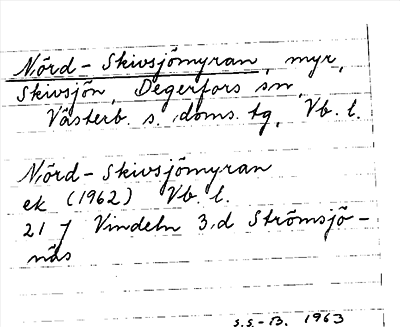 Nörd-Skivsjömyran, myr,
Skivsjön, Degerfors sn,
Västerb. s. doms. tg, Vb. l.
Nörd-Skivsjömyran
ek (1962) Vb. l.
21 J Vindeln 3.d Strömsjö-
näs
S.S.-B. 1963